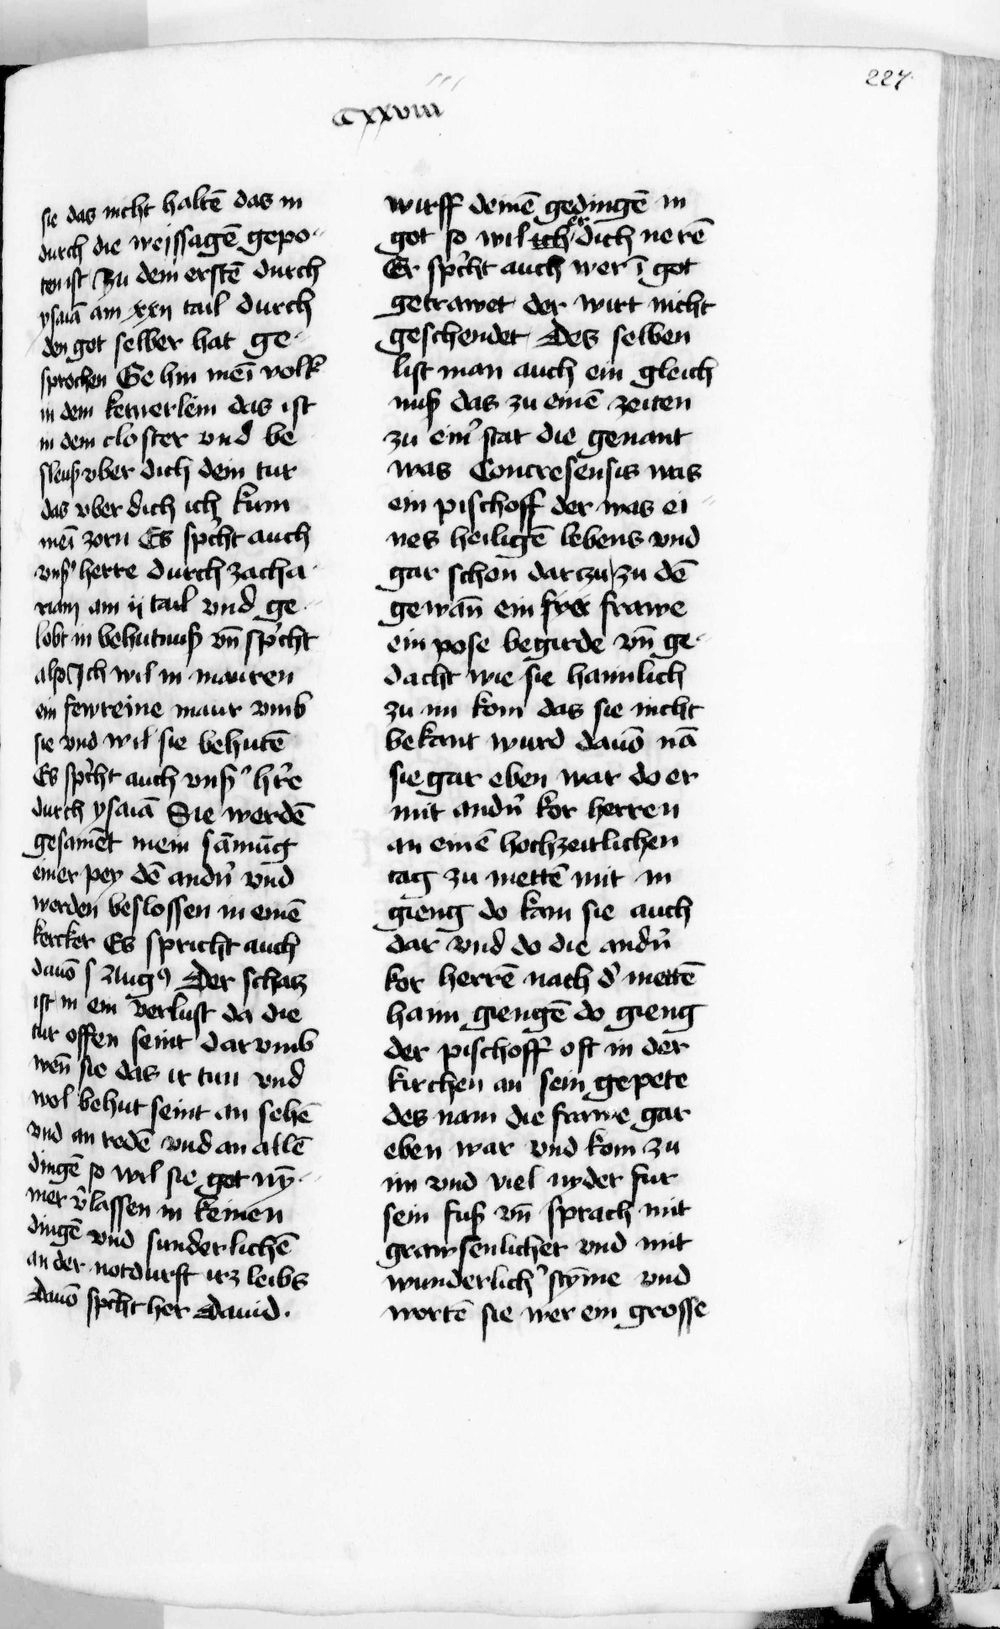 227
CXXVIII
sie das nicht haltē das in
durch die weissagē gepo-
ten ist Zu dem erstē durch
ysaiā am xxij tail durch
den got selber hat ge-
sprochen Ge hin mei͂ volk
in dem ketterlein das ist
in dem closter vnd be
sleuß vber dich dein tur
das vber dich ich kum
mei͂ zorn Es sp̄cht auch
vnß' herre durch zacha-
riam am ij tail vnd ge-
lobt in behutnuß vn̄ sp̄cht
also Ich wil in mauren
ein fewreine maur vmb
sie vnd wil sie behutē
Es sp̄cht auch vnß' hr̄e
durch ysaiā Sie werdē
gesamēt mein sāmūg
einer pey dē andn̄ vnd
werden beslossen in einē
kercker Es spricht auch
dauō s Augꝰ Der schatz
ist in ein verlust da die
tur offen seint dar vmb
wen̄ sie das ir tun vnd
wol behut seint an sehē
vnd an redē vnd an allē
dingē so wil sie got ny̅-
mer v̄lassen in keinen
dingē vnd sunderlichē
an der notdurft irz leibs
Dauō sp̄cht her Dauid.
wirff deinē gedingē in
got so wil ich er dich nerē
Er sp̄cht auch wer ī got
getrawet der wirt nicht
geschendet Des selben
list man auch ein gleich
nuß das zu einē zeiten
zu ein' stat die genant
was Concresensis was
ein pischoff der was ei-
nes heiligē lebens vnd
gar schon dar zu zu dē
gewan̄ ein frei frawe
ein pose begirde vn̄ ge-
dacht wie sie haimlich
zu im kom das sie nicht
bekant wurd dauō nā
sie gar eben war do er
mit andn̄ kor herren
an einē hochzeitlichen
tag zu mettē mit in
gieng do kam sie auch
dar vnd do die andn̄
kor herrē nach d' mettē
haim giengē do gieng
der pischoff oft in der
kirchen an sein gepete
des nam die frawe gar
eben war vnd kom zu
im vnd viel nyder fur
sein fuß vn̄ sprach mit
grawsenlicher vnd mit
wunderlich' sty̅me vnd
wortē sie wer ein grosse